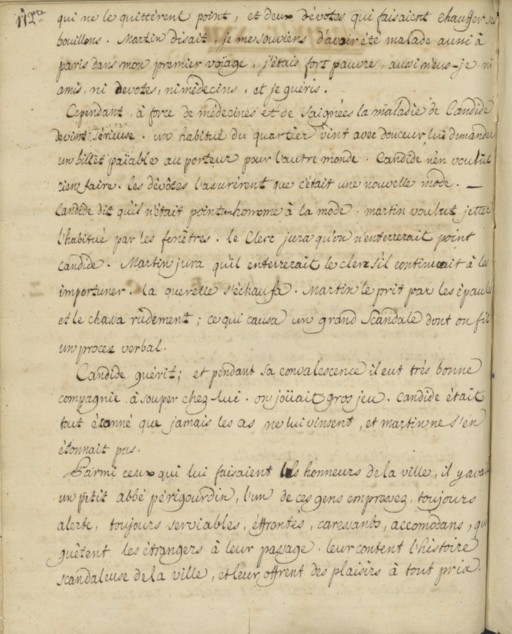 qui ne le quittérent point, et deux dévotes qui faisaient chauffer ses
bouillons. Martin disait, je me souviens d'avoir été malade aussi à
paris dans mon premier voiage, j'étais fort pauvre, aussi n'eus-je ni
amis, ni devotes, ni médecins, et je guéris.
Cependant, à force de médecines et de saignées la maladie de Candide
devint sérieuse. un habitué du quartier vint avec douceur lui demander
un billet païable au porteur pour l'autre monde. Candide n'en voulut
rien faire. les dévôtes l'assurérent que c'était une nouvelle mode.
Candide dit qu'il n'était point homme à la mode. martin voulut jetter
l'habitué par les fenêtres. le Clerc jura qu'on n'enterrerait point
Candide. Martin jura qu'il enterrerait le clerc s'il continuait à les
importuner. la querelle s'échaufa. Martin le prit par les épaules
et le chassa rudement; ce qui causa un grand scandale dont on fit
un procez verbal.
Candide guérit; et pendant sa convalescence il eut très bonne
compagnie à souper chez lui. on joüait gros jeu. Candide était
tout étonné que jamais les as ne lui vinsent, et martin ne s'en
étonnait pas.
Parmi ceux qui lui faisaient les honneurs de la ville, il y avait
un petit abbé périgourdin, l'un de ces gens empressez, toujours
alerte, toujours serviables, éffrontés, caressants, accomodans, qui
guêtent les étrangers à leur passage. leur content l'histoire
scandaleuse de la ville, et leur offrent des plaisirs à tout prix.